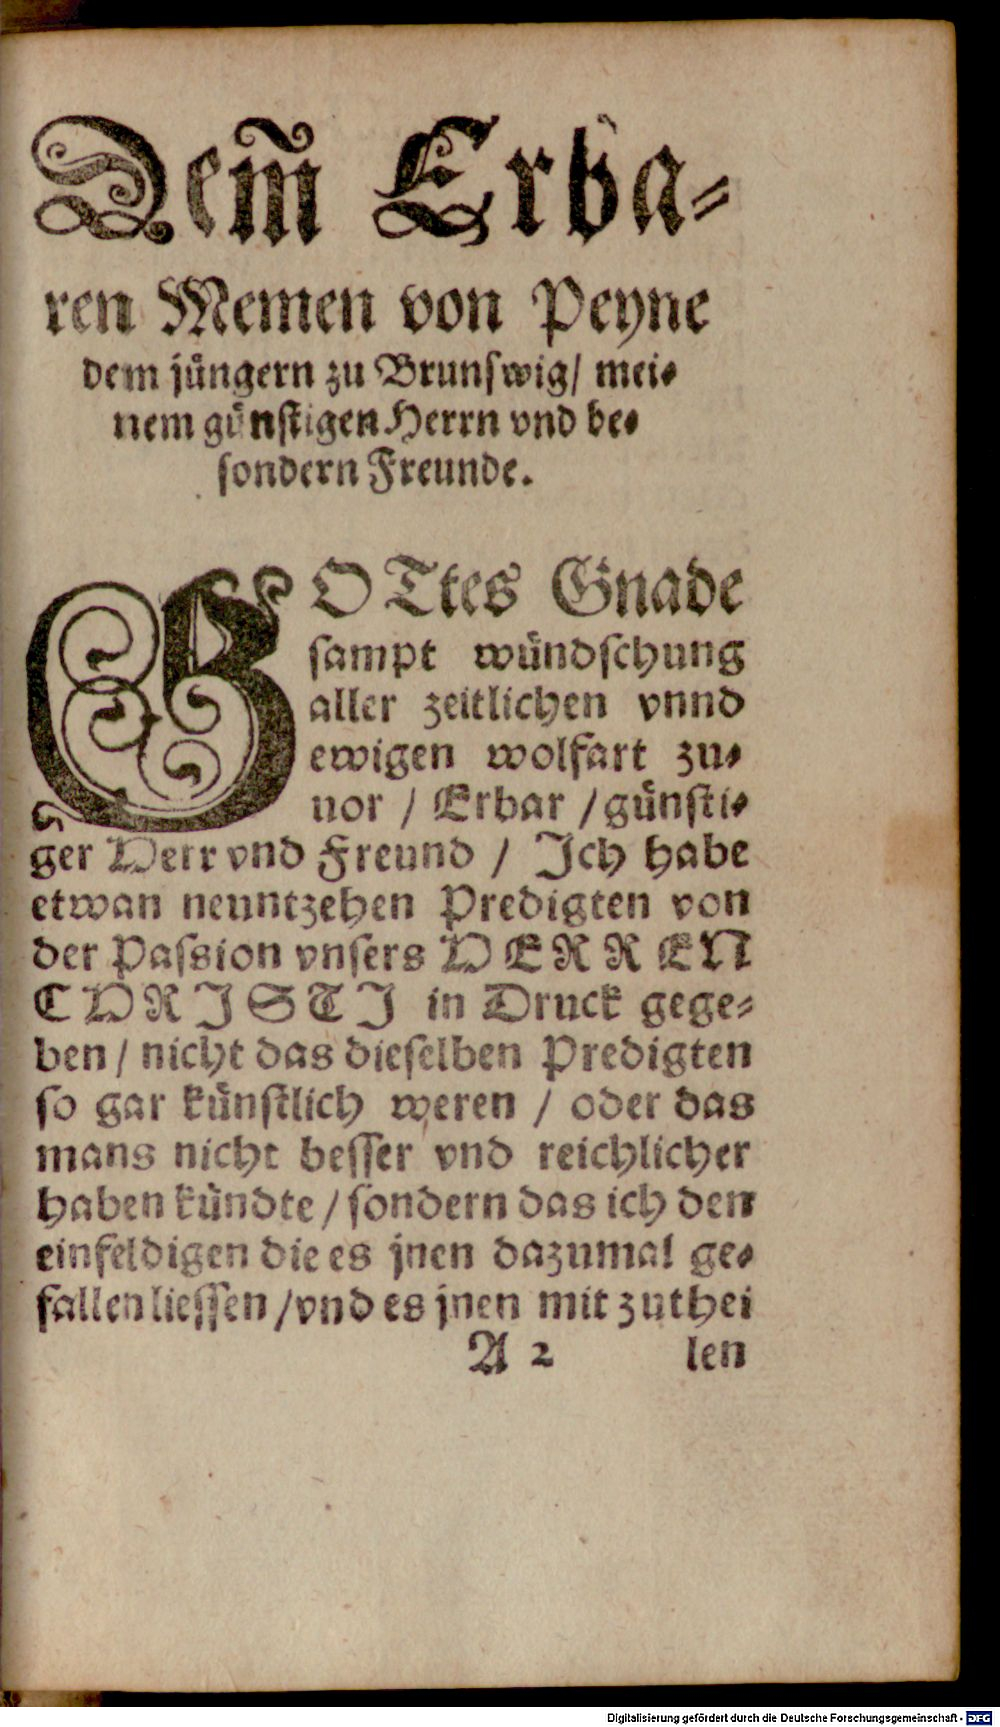 Dem̃ Erba⸗
ren Memen von Peyne
dem juͤngern zu Brunſwig/ mei⸗
nem guͤnſtigen Herrn vnd be⸗
ſondern Freunde.
GOTtes Gnade
ſampt wuͤndſchung
aller zeitlichen vnnd
ewigen wolfart zu⸗
uor / Erbar / guͤnſti⸗
ger Herr vnd Freund / Ich habe
etwan neuntzehen Predigten von
der Paſsion vnſers HERREN
CHRISTI in Druck gege⸗
ben / nicht das dieſelben Predigten
ſo gar kuͤnſtlich weren / oder das
mans nicht beſſer vnd reichlicher
haben kuͤndte / ſondern das ich den
einfeldigen die es jnen dazumal ge⸗
fallen lieſſen / vnd es jnen mit zuthei
A 2 len
Digitalisierung gefördert durch die Deutsche Forschungsgemeinschaft - DFG